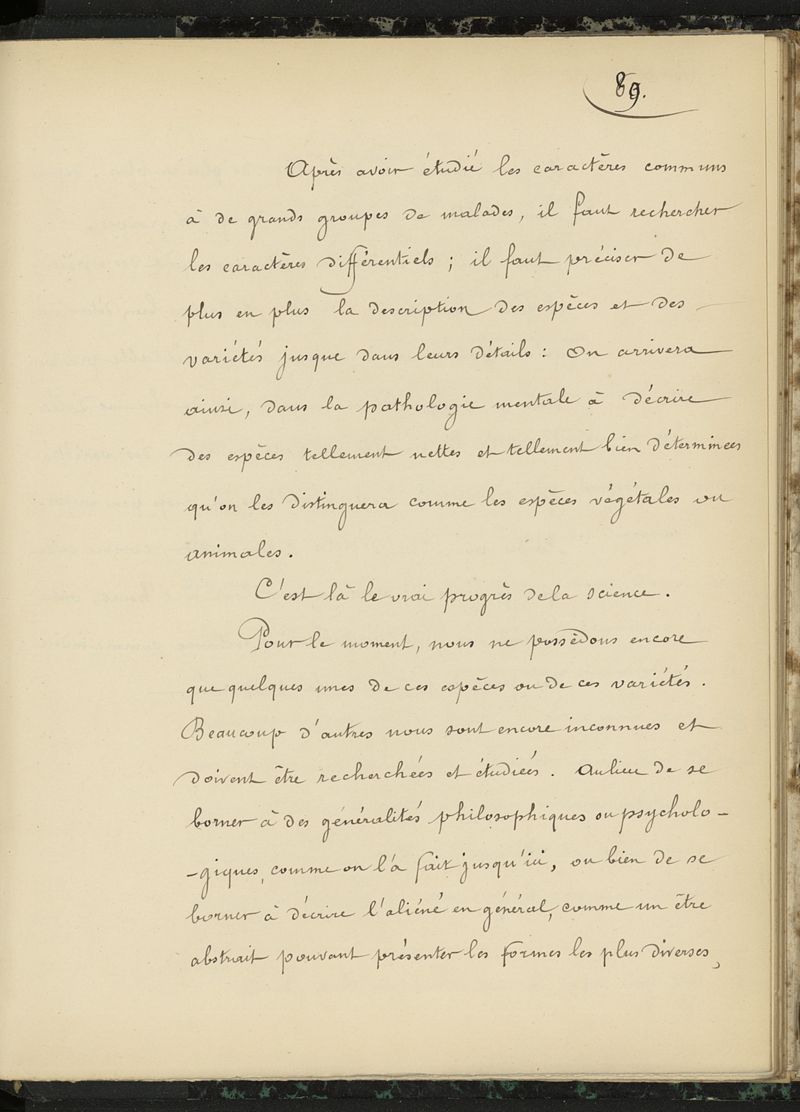 89.
Après avoir étudié les caractères communs
à de grands groupes de malades, il faut rechercher
les caractères différentiels ; il faut préciser de
plus en plus la description des espèces et des
variétés jusque dans leurs détails : On arrivera
ainsi, dans la pathologie mentale à décrire
des espèces tellement nettes et tellement bien déterminées
qu'on les distinguera comme les espèces végétales ou
animales.
C'est là le vrai progrès de la science.
Pour le moment, nous ne possédons encore
que quelques unes de ces espèces ou de ces variétés.
Beaucoup d'autres nous sont encore inconnues et
doivent être recherchées et étudiées. Au lieu de se
borner à des généralités philosophiques ou psycholo-
-giques, comme on l'a fait jusqu'ici, ou bien de se
borner à décrire l'aliéné en général, comme un être
abstrait pouvant présenter les formes les plus diverses,